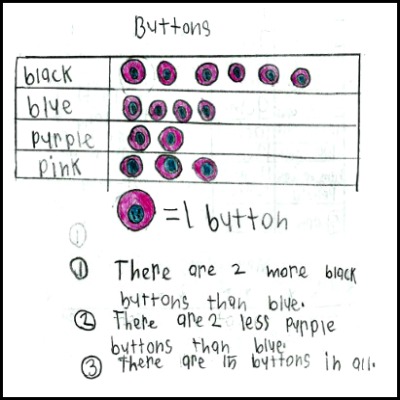 Buttons
black
blue
purple
pink
= 1 button
① There are 2 more black
buttons than blue.
② There are 2 less purple
buttons than blue.
③ There are 15 buttons in all.